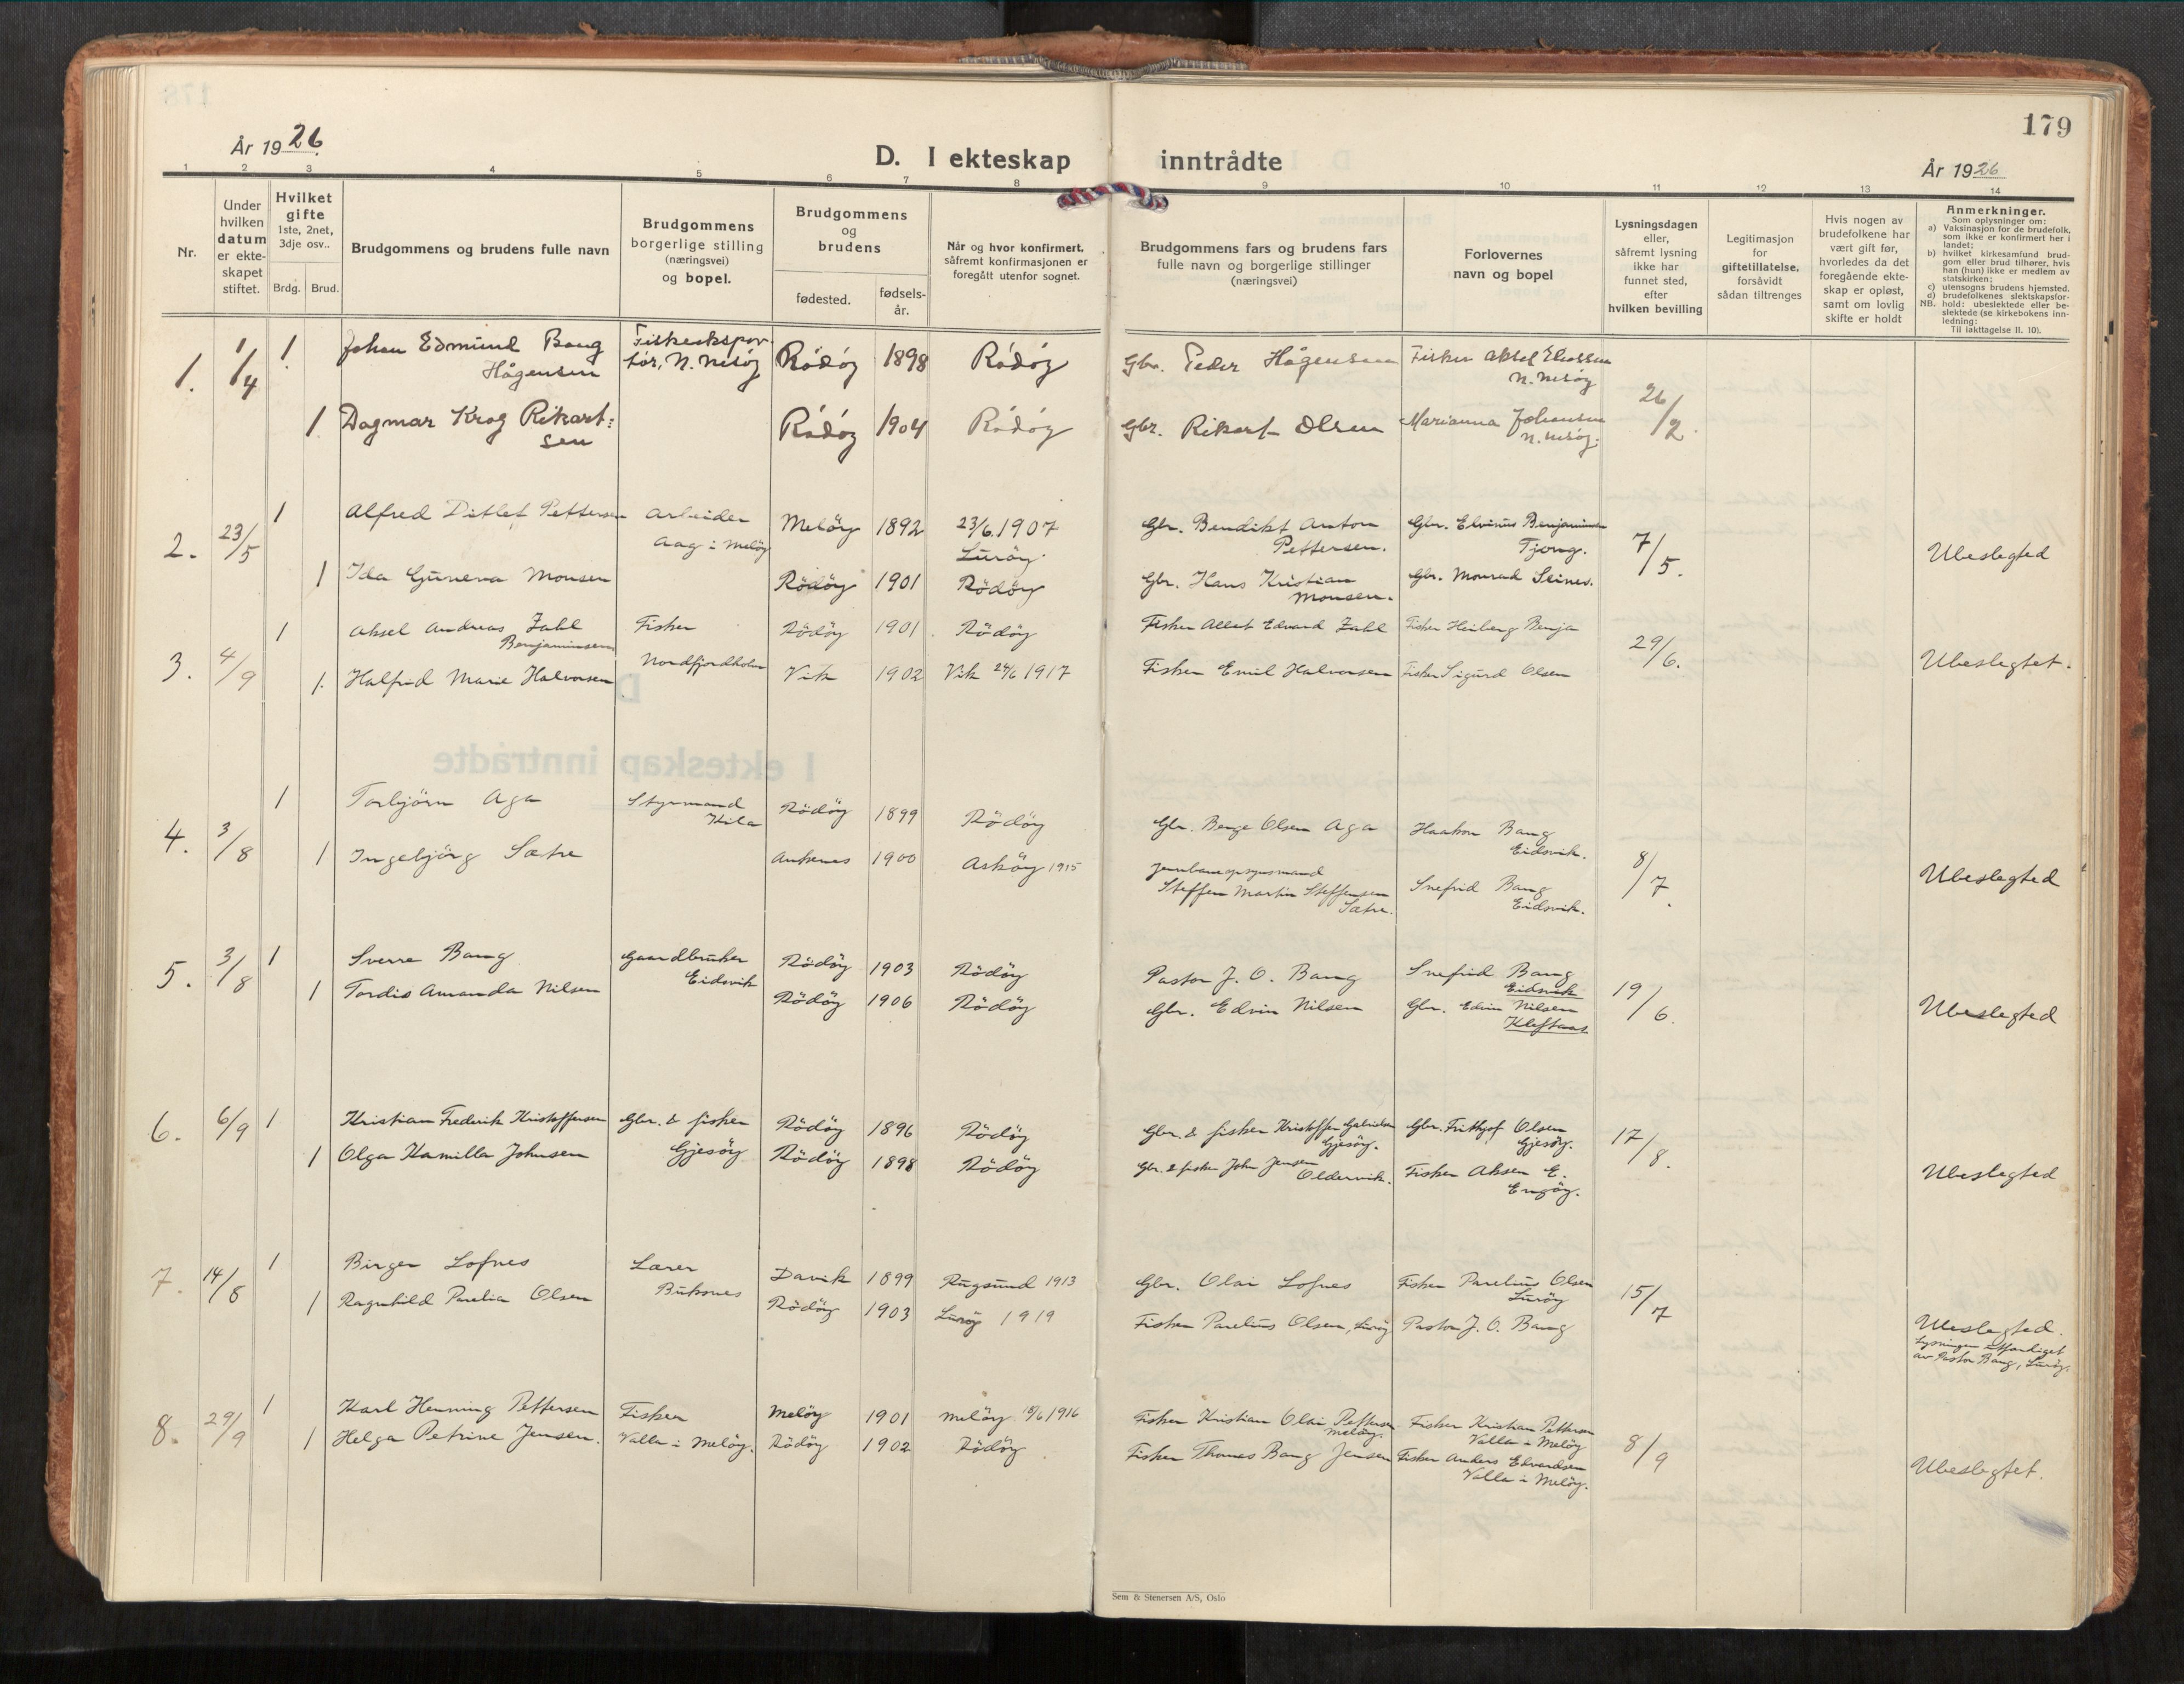 179
År 1926
D. I ekteskap inntrådte
År 1926
1 2 3 4 5 6 7 8 9 10 11 12 13 14
Nr.
Under hvilken datum er ekteskapet stiftet.
Hvilket gifte 1ste, 2net, 3dje osv..
Brdg. Brud.
Brudgommens og brudens fulle navn
Brudgommens borgerlige stilling (næringsvei) og bopel.
Brudgommens og brudens
fødested. fødsels-år.
Når og hvor konfirmert, såfremt konfirmasjonen er foregått utenfor sognet.
Brudgommens fars og brudens fars fulle navn og borgerlige stillinger (næringsvei)
Forlovernes navn og bopel
Lysningsdagen eller, såfremt lysning ikke har funnet sted, efter hvilken bevilling
Legitimasjon for giftetillatelse, forsåvidt sådan tiltrenges
Hvis nogen av brudefolkene har vært gift før, hvorledes da det foregående ekteskap er opløst, samt om lovlig skifte er holdt
Anmerkninger.
Som oplysninger om:
a) Vaksinasjon for de brudefolk, som ikke er konfirmert her i landet;
b) hvilket kirkesamfund brudgom eller brud tilhører, hvis han (hun) ikke er medlem av statskirken;
c) utensogns brudens hjemsted.
d) brudefolkenes slektskapsforhold: ubeslektede eller beslektede (se kirkebokens innledning:
NB. Til iakttagelse II. 10).
1. 1/4 1 Johan Edmund Bang Hågensen Fiskeekspor-tør, N. Nesøy Rødøy 1898 Rødøy Gbr. Peder Hågensen Fisker Aksel Eliassen N. Nesøy
1 Dagmar Krog Rikart:sen Rødøy 1904 Rødøy Gbr. Rikart Olsen Marianna Johansen N. Nesøy. 26/2.
2. 23/5 1 Alfred Ditlef Pettersen Arbeider Aag i Meløy Meløy 1892 23/6 1907 Lurøy Gbr. Bendikt Anton Pettersen. Gbr. Elvinus Benjaminsen Tjong. 7/5. Ubeslegted
1 Ida Guneva Monsen Rødøy 1901 Rødøy Gbr. Hans Kristian Monsen. Gbr. Monrad Seines.
3. 4/9 1 Aksel Andreas Zahl Benjaminsen Fisker Nordfjordholm Rødøy 1901. Rødøy Fisker Edvard Zahl Fisker Heiberg Benja 29/6. Ubeslegtet.
1. Halfrid Marie Halvorsen Vik 1902 Vik 24/6 1917 Fisker Emil Halvorsen Fisker Sigurd Olsen
4. 3/8 1 Torbjörn Aga Styrmand Kila Rødøy 1899 Rødøy Gbr. Berge Olsen Aga Haakon Bang Eidsvik. 8/7. Ubeslegted
1 Ingebjörg Sætre Ankenes 1900 Askøy 1915 Jernbaneopsynsmand Steffen Martin Steffensen Sætre. Snefrid Bang Eidsvik.
5. 3/8 1 Sverre Bang Gaardbruker Eidsvik Rødøy 1903 Rødøy Pastor J. O. Bang Snefrid Bang Eidsvik 19/6. Ubeslegted
1 Tordis Amanda Nilsen Rødøy 1906 Rødøy Gbr. Edvin Nilsen Gbr. Edvin Nilsen Kleftaas
6. 6/9 1 Kristian Frederik Kristoffersen Gbr. & fisker Gjesøy Rødøy 1896 Rødøy Gbr. & fisker Kristoffer Gabrielsen Gjesøy. Gbr. Frithjof Olsen Gjesøy. 17/8. Ubeslegted
1 Olga Kamilla Johnsen Rødøy 1898 Rødøy Gbr. & fisker John Jensen Oldervik. Fisker Aksen E. Engøy.
7. 14/8 1 Birger Lofnes Lærer Buksnes Davik 1899 Rugsund 1913 Gbr. Olai Lofnes Fisker Parelius Olsen Lurøy 15/7 Ubeslegted.
1 Ragnhild Parelia Olsen Rødøy 1903 Lurøy 1919 Fisker Parelius Olsen, Lurøy Pastor J. O. Bang
Lysningen utfærdiget av Pastor Bang, Lurøy.
8. 29/9 1 Karl Henning Pettersen Fisker Valla i Meløy. Meløy 1901 Meløy 18/6 1916 Fisker Kristian Olai Pettersen Meløy. Fisker Kristian Pettersen Valla i Meløy 8/9 Ubeslegtet.
1 Helga Petrine Jensen. Rødøy 1902 Rødøy Fisker Thomas Bang Jensen Fisker Anders Edvardsen Valla i Meløy.
Sem & Stenersen A/S, Oslo